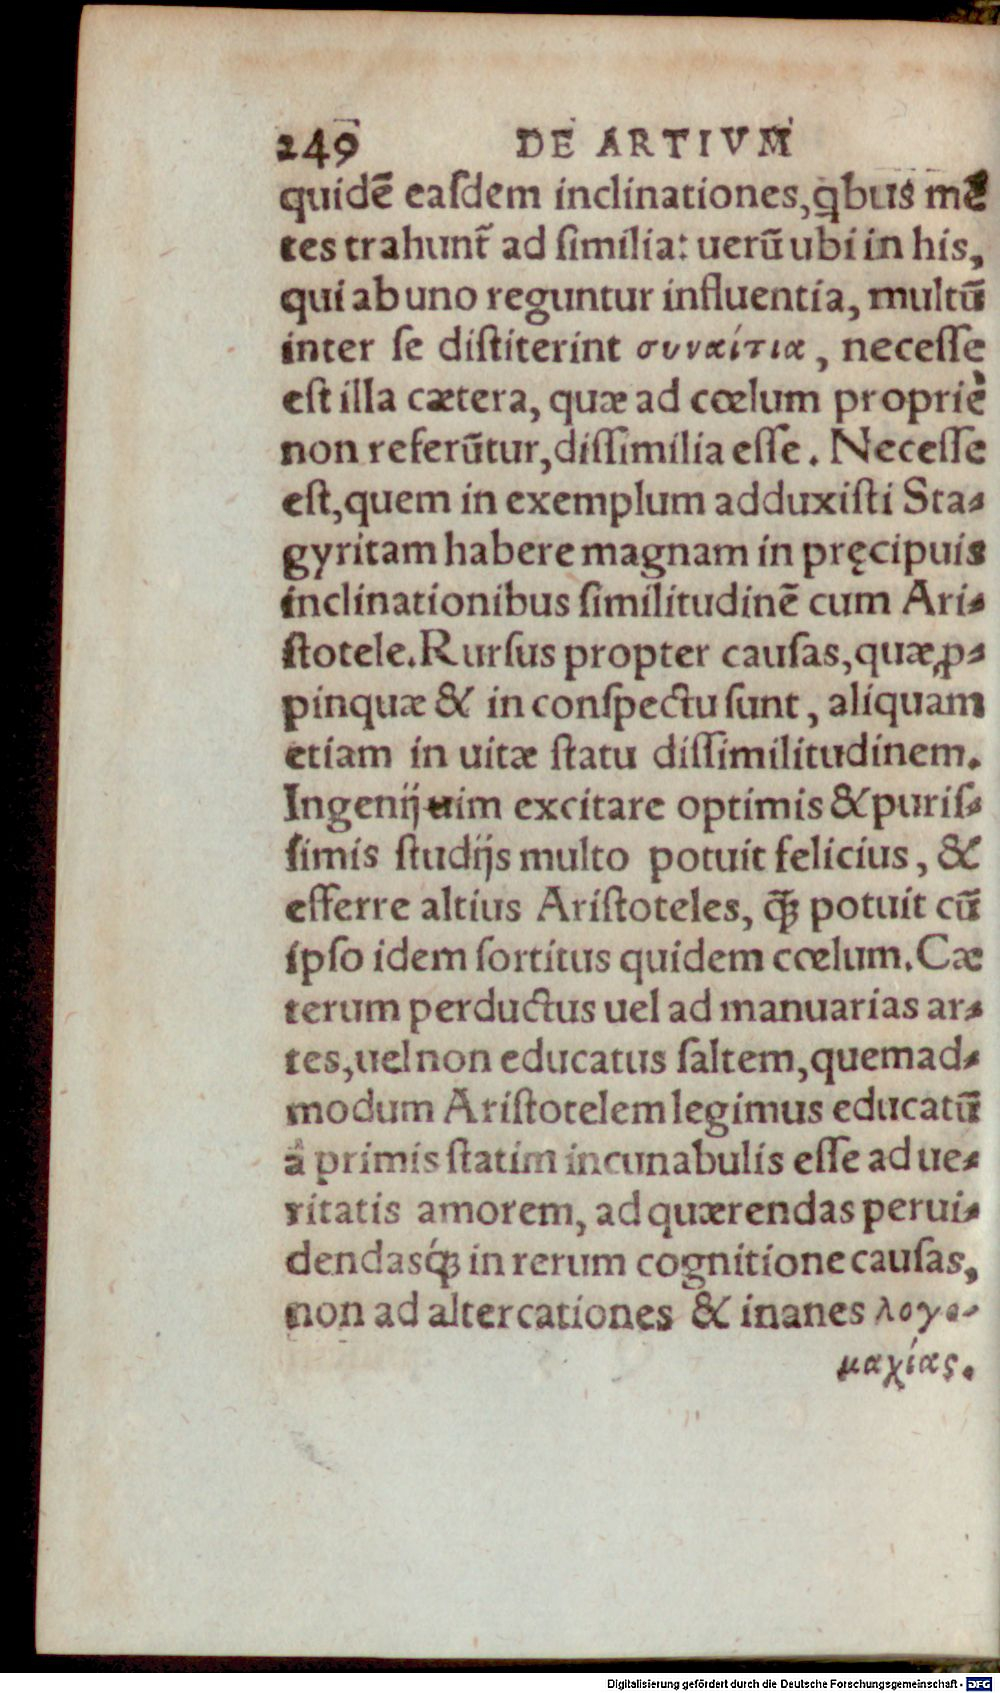 249 DE ARTIVM
quidẽ eaſdem inclinationes, qͥbus mẽ
tes trahunt᷑ ad ſimilia: uerũ ubi in his,
qui ab uno reguntur influentia, multũ
inter ſe diſtiterint συναίτια, neceſſe
eſt illa cætera, quæ ad cœlum propriè
non referũtur, diſſimilia eſſe. Neceſſe
eſt, quem in exemplum adduxiſti Sta-
gyritam habere magnam in pręcipuis
inclinationibus ſimilitudinẽ cum Ari-
ſtotele. Rurſus propter cauſas, quæ ꝓ-
pinquæ & in conſpectu ſunt, aliquam
etiam in uitæ ſtatu diſſimilitudinem.
Ingenij uim excitare optimis & puriſ-
ſimis ſtudijs multo potuit felicius, &
efferre altius Ariſtoteles, ꝙ̃ potuit cũ
ipſo idem ſortitus quidem cœlum. Cæ
terum perductus uel ad manuarias ar-
tes, uel non educatus ſaltem, quemad-
modum Ariſtotelem legimus educatũ
à primis ſtatim incunabulis eſſe ad ue-
ritatis amorem, ad quærendas perui-
dendasq́ꝫ in rerum cognitione cauſas,
non ad altercationes & inanes λογο-
μαχίας.
Digitalisierung gefördert durch die Deutsche Forschungsgemeinschaft - DFG